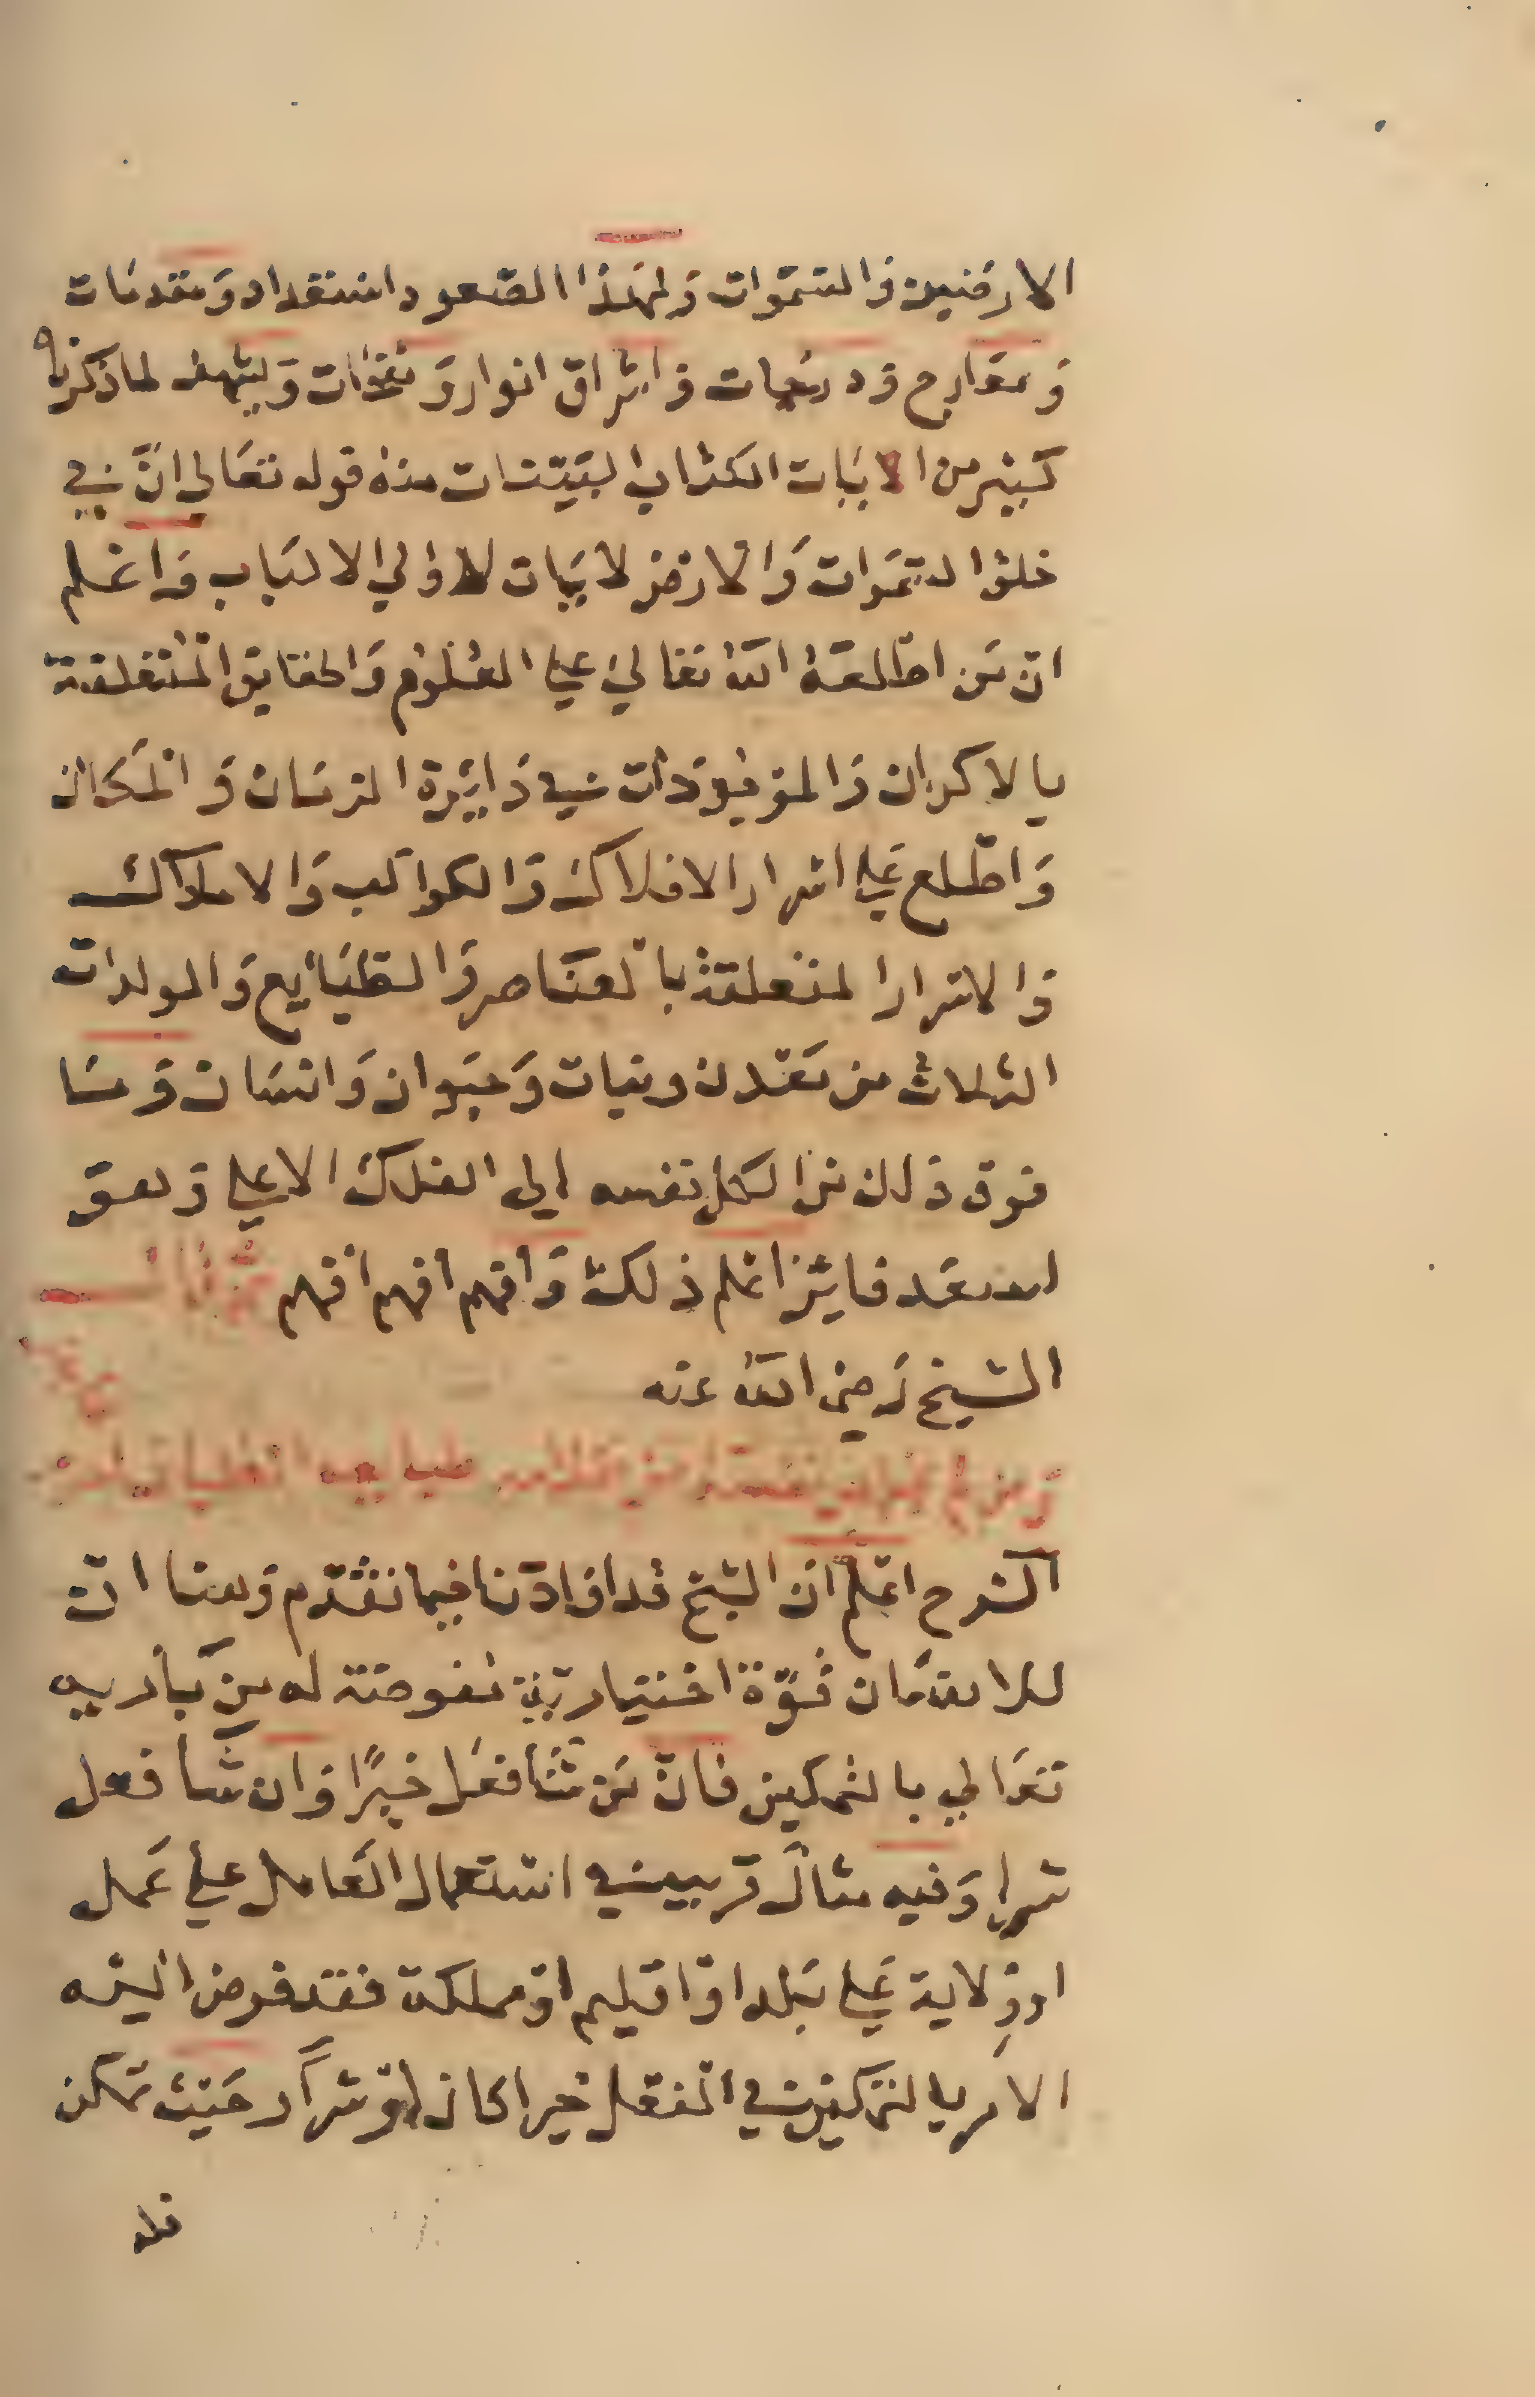 الارضين والسموات ولهذا الصعود استعداد ومقدمات
ومعارج ودرجات واشراق انوار ونفحات ويشهد لما ذكرناه
كثير من الايات الكتاب البينات منه قوله تعالي ان في
خلق السموات والارض لايات لاولي الالباب واعلم
ان من اطلعه الله تعالي علي العلوم والحقايق المتعلقة
بالاكوان والموجودات في دايرة الزمان والمكان
واطلع علي اسرار الافلاك والكواكب والاملاك
والاسرار المتعلقة بالعناصر والطبايع والمولدات
الثلاث من معدن ونبات وحيوان وانسان وما
فوق ذلك نفسه الي الفلك الاعلي وهو
فايز اعلم ذلك وافهم افهم افهم
الشيخ رضي الله عنه
ومن لم نفسه من طبايعه
الشرح اعلم ان الشيخ قد افادنا فيما تقدم ان
للانسان قوة اختيارية مفوضة له من باريه
تعالي بالتمكين فان من شأ فعل خيرا وان شأ فعل
شرا وفيه مثال قريب في استعمال العامل علي عمل
او ولاية علي بلد او اقليم او مملكة فقد فوض اليه
الامر بالتمكين في الفعل خيرا كان او شرا حيث تمكن